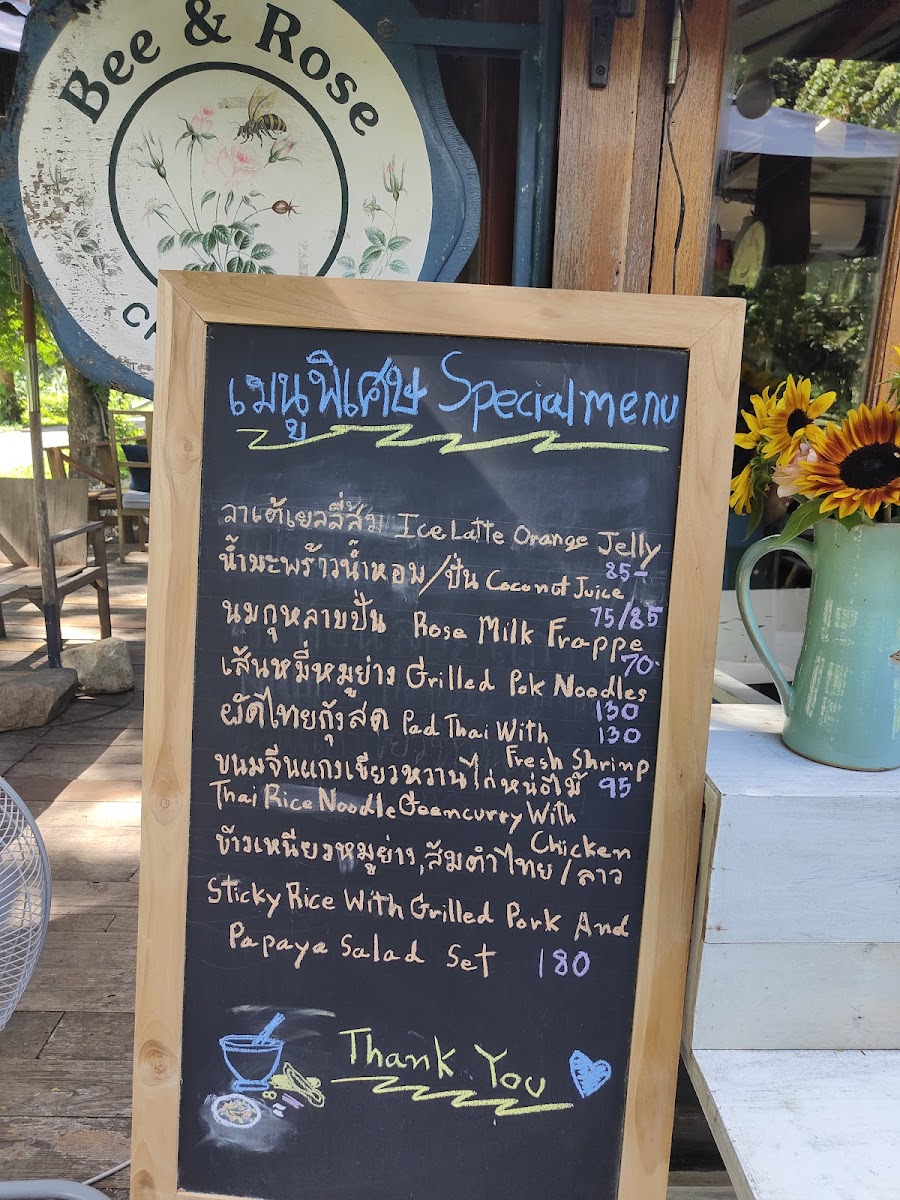 Bee & Rose
เมนูพิเศษ Special menu
ลาเต้เยลลี่ส้ม Ice Latte Orange Jelly
85-
น้ำมะพร้าวน้ำหอม/ปั่น Coconut Juice
75/85
นมกุหลาบปั่น Rose Milk Frappe
70.
เส้นหมี่หมูย่าง Grilled Pok Noodles
130
ผัดไทยกุ้งสด Pad Thai With
Fresh Shrimp
130
ขนมจีนแกงเขียวหวานไก่หน่อไม้ 95
Thai Rice Noodle Geencurry With
Chicken
ข้าวเหนียวหมูย่าง,ส้มตำไทย/ลาว
Sticky Rice With Grilled Pork And
Papaya Salad Set 180
Thank You